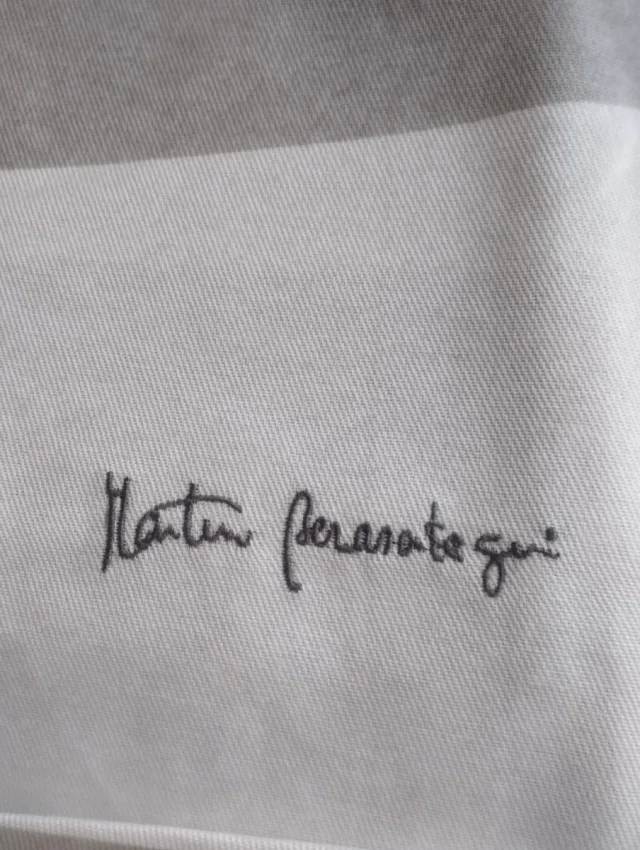 Martin Berasategui